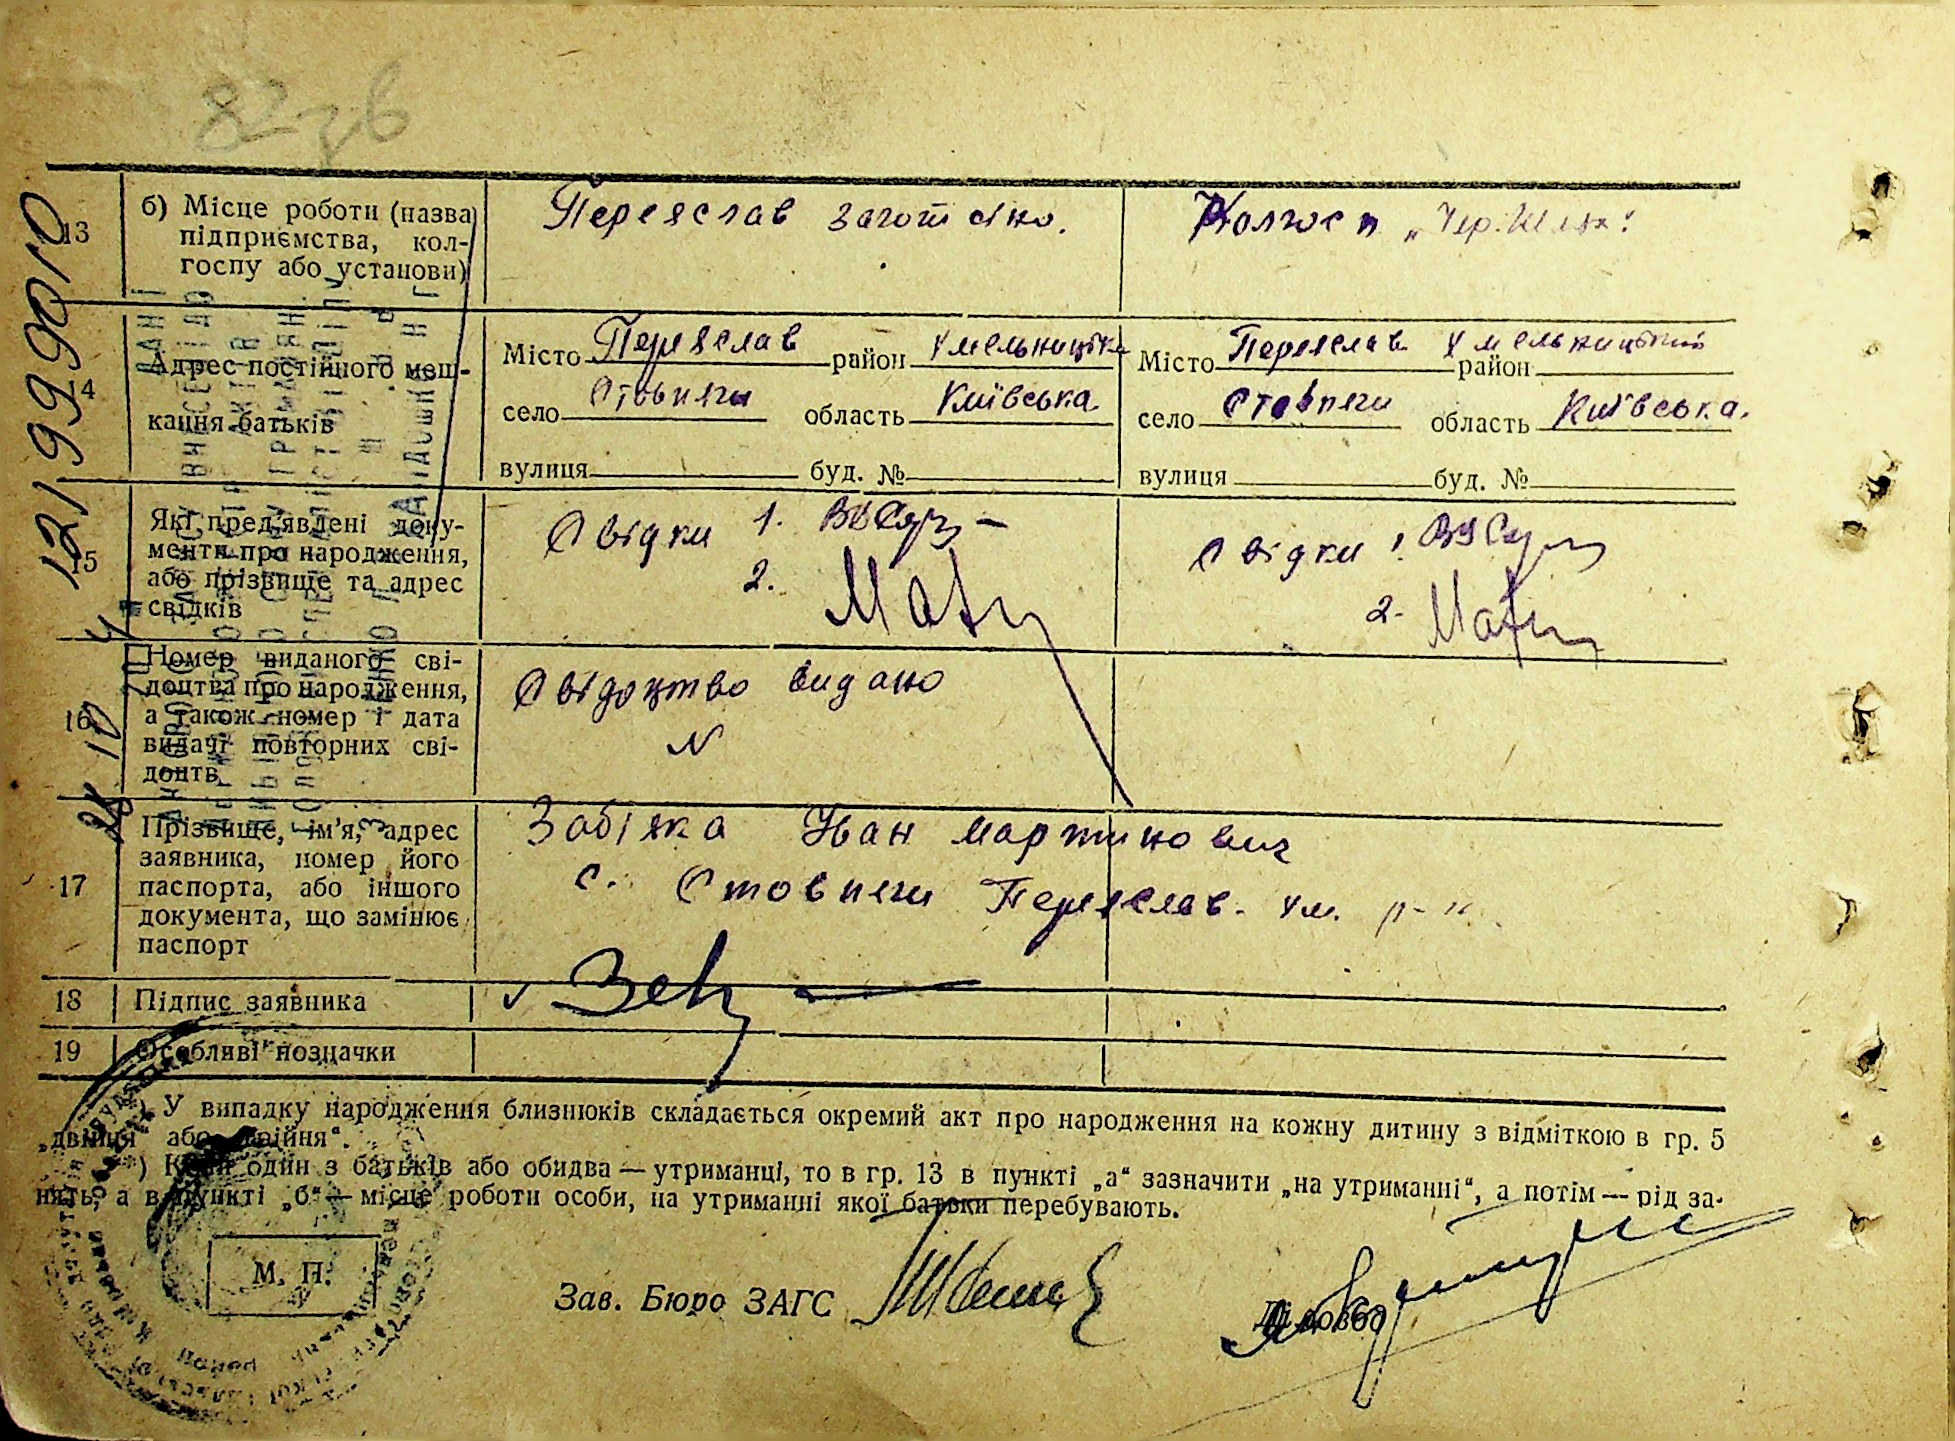 82 зв
13
б) Місце роботи (назва
підприємства, кол-
госпу або установи)
Переяслав заготсіно.
Колгосп „Чер. Шлях"
14
Адрес постійного меш-
кання батьків
Місто Переяслав район Хмельницьк
село Стовпяги область Київська
вулиця буд. №
Місто Переяслав Хмельницький район
село Стовпяги область Київська.
вулиця буд. №
15
Які пред'явлені доку-
менти про народження,
або прізвище та адрес
свідків
Свідки 1.
2.
Свідки 1.
2.
16
Номер виданого сві-
доцтва про народження,
а також номер і дата
видачі повторних сві-
доцтв
Свідоцтво видано
N
17
Прізвище, ім'я, адрес
заявника, номер його
паспорта, або іншого
документа, що замінює
паспорт
Забіяка Іван Мартинович
с. Стовпяги Переяслав. Хм. р-н.
18 Підпис заявника
19 Особливі позначки
) У випадку народження близнюків складається окремий акт про народження на кожну дитину з відміткою в гр. 5
„двійня" або „трійня".
) Коли один з батьків або обидва — утриманці, то в гр. 13 в пункті „а" зазначити „на утриманні", а потім — рід за-
нять, а в пункті „б" — місце роботи особи, на утриманні якої батьки перебувають.
М. П.
Зав. Бюро ЗАГС
Діловод
121999010